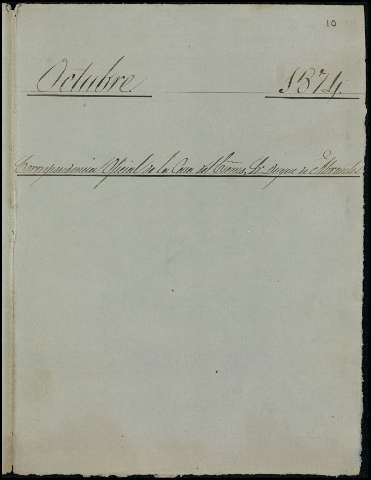 10
Octubre 1874
Correspondencia Oficial de la Casa del Exmo. Sr. Duque de